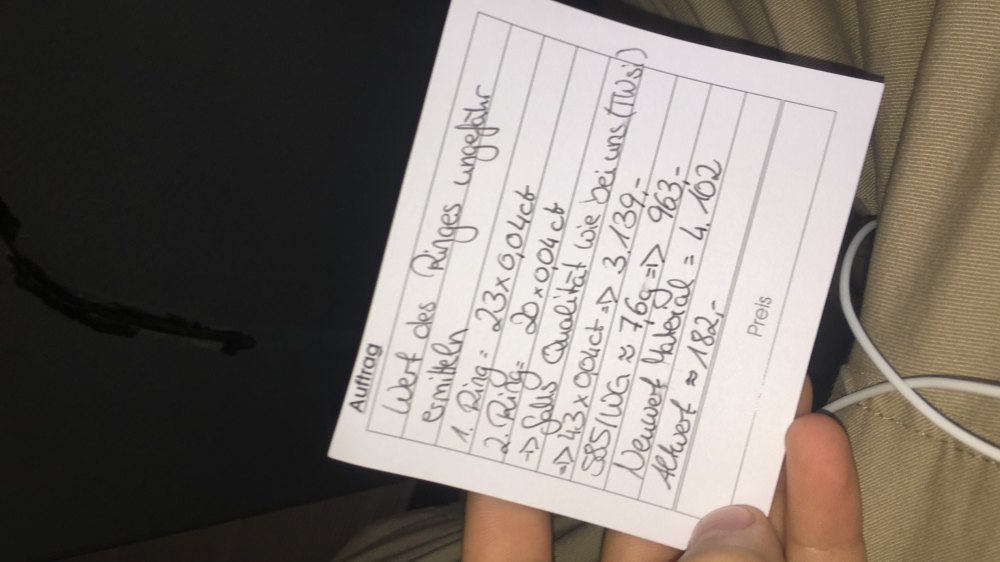 Auftrag
Wert des Ringes ungefähr
ermitteln
1. Ring = 23 x 0,04ct
2. Ring = 20 x 0,04 ct
-> falls Qualität wie bei uns (TWsi)
=> 43 x 0,04ct => 3.139,-
585/WG ≈ 76g => 963,-
Neuwert Material = 4.102
Altwert ≈ 182,-
Preis